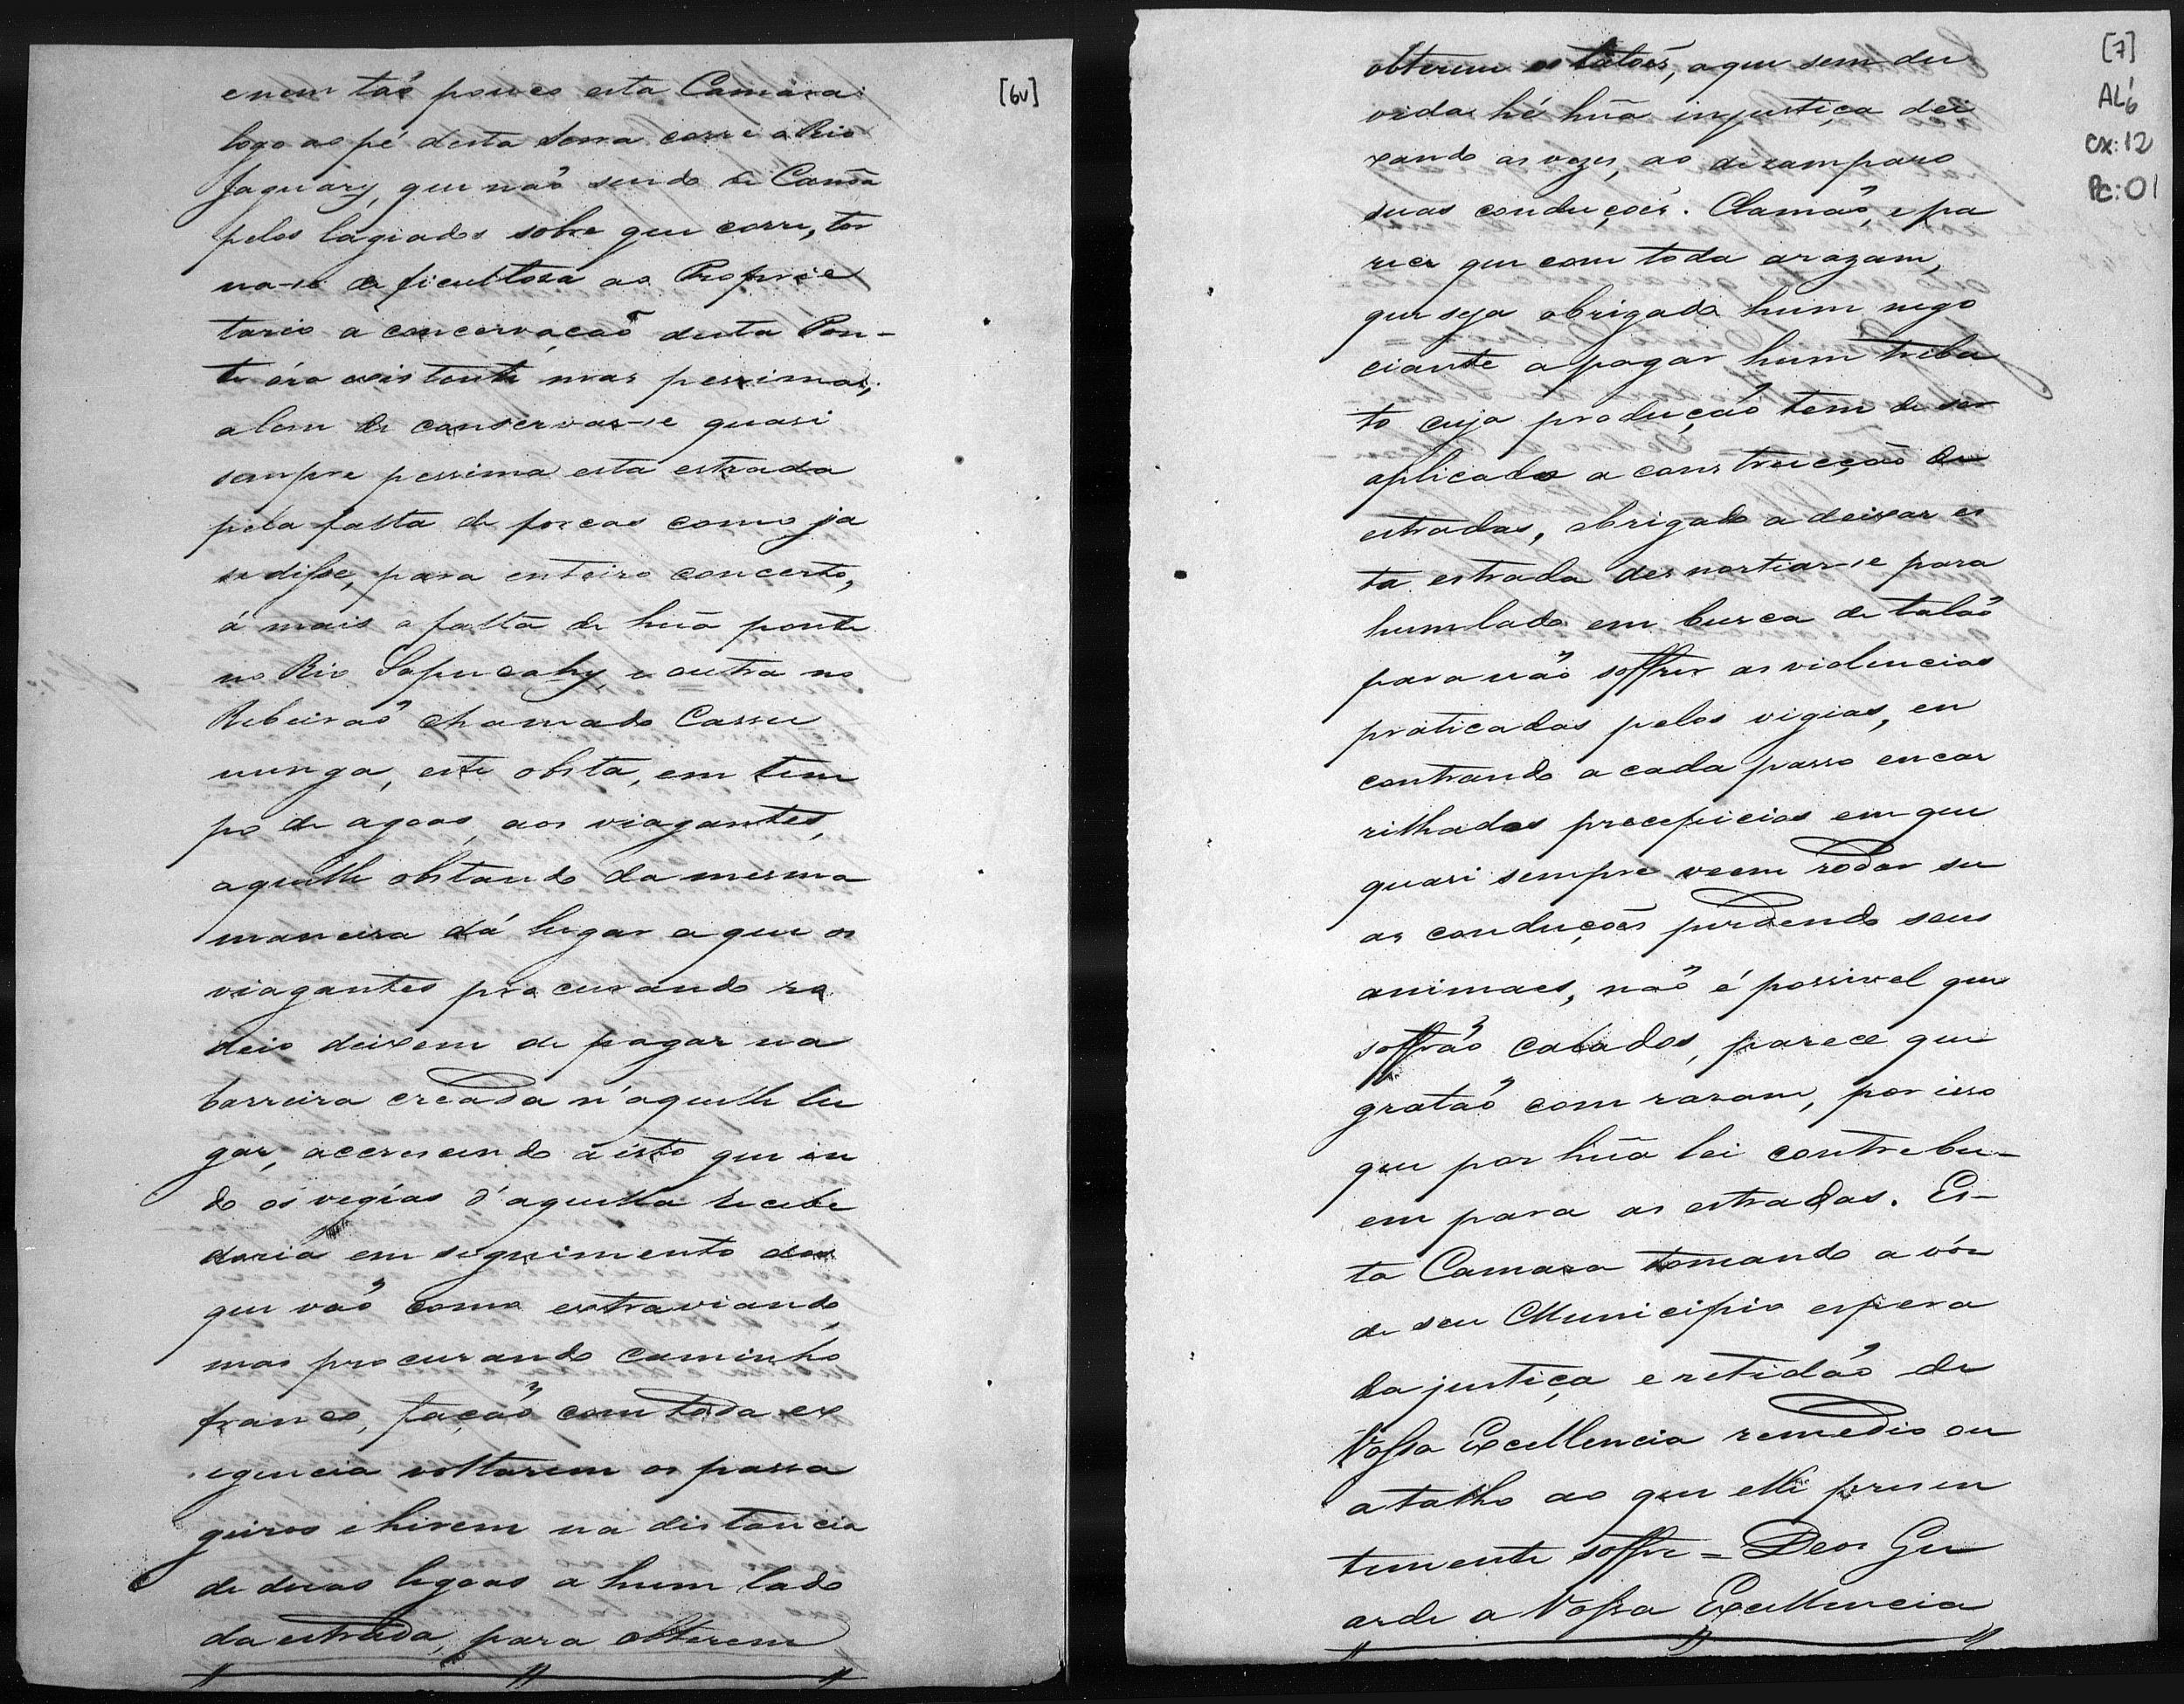 [6v]
e nem tão pouco esta Camara:
logo ao pé desta serra corre o Rio
Jaguary, que não sendo de Canôa
pelos lagiados sobre que corre, tor
na-se deficultosa ao Proprie
tario a concervação desta Pon-
te óra existente mas pessima,
alem de conservar-se quasi
sempre pessima esta estrada
pela falta de forcas como ja
se disse, para enteiro concerto,
á mais a falta de hũa ponte
no Rio Sapucahy, e outra no
Ribeirão chamado Cassu
nunga, este obsta, em tem
po de agoas, aos viagantes,
aquelle obstando da mesma
maneira dá lugar a que os
viagantes procurando ro
deio deixem de pagar na
barreira creada n'aquelle lu
gar, accrescendo a isto que in
do os vegias d'aquella recebe
doria em seguimento dos
que vão como extraviando,
mas procurando caminho
franco, fação com toda ex
egencia voltarem os passa
geiros e hirem na distancia
de duas legoas a hum lado
da estrada, para obterem
[7]
AL6
cx: 12
Pc: 01
obterem os talões, a que sem du
vida hé hũa injustiça dei
xando as vezes, ao dezamparo
suas conduções. Clamão, e pa
rece que com toda arazam,
que seja obrigado hum nego
ciante a pagar hum tribu
to cuja producção tem de ser
aplicada a construcção de
estradas, obrigado a deixar es
ta estrada desnortiar-se para
humlado em busca de talão
para não soffrer as violencias
praticadas pelos vigias, en
contrando a cada passo encar
rilhados precepicios em que
quasi sempre veem rodar su
as conduções perdendo seus
animaes, não é possivel que
soffrão calados, parece que
gratão com rasam, por isso
que por hũa lei contrebu-
em para as estradas. Es-
ta Camara tomando a vós
de seu Municipio espera
da justiça e retidão de
Vossa Excellencia remedio ou
atalho ao que elle presen
temente soffre = Deos Gu
arde a Vossa Excellencia